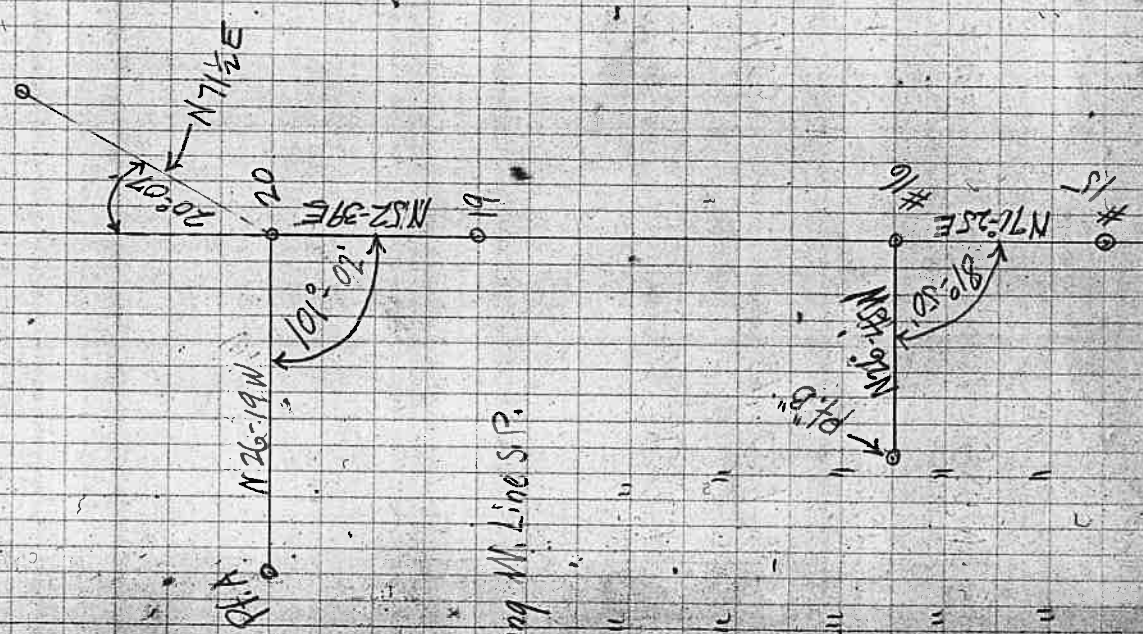 N71½E
20°-07'
20
N52-39E
19
101°-02'
N26-19W.
Pt. A
ng M. Line S.P.
" " " " "
" " " " "
#16
N71°25E
#15
81°-50'
Pt. "B"